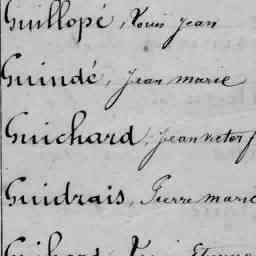 Guillopé, Louis Jean
Guindé, Jean marie
Guichard, Jean victor f
Guidrais, Pierre marie